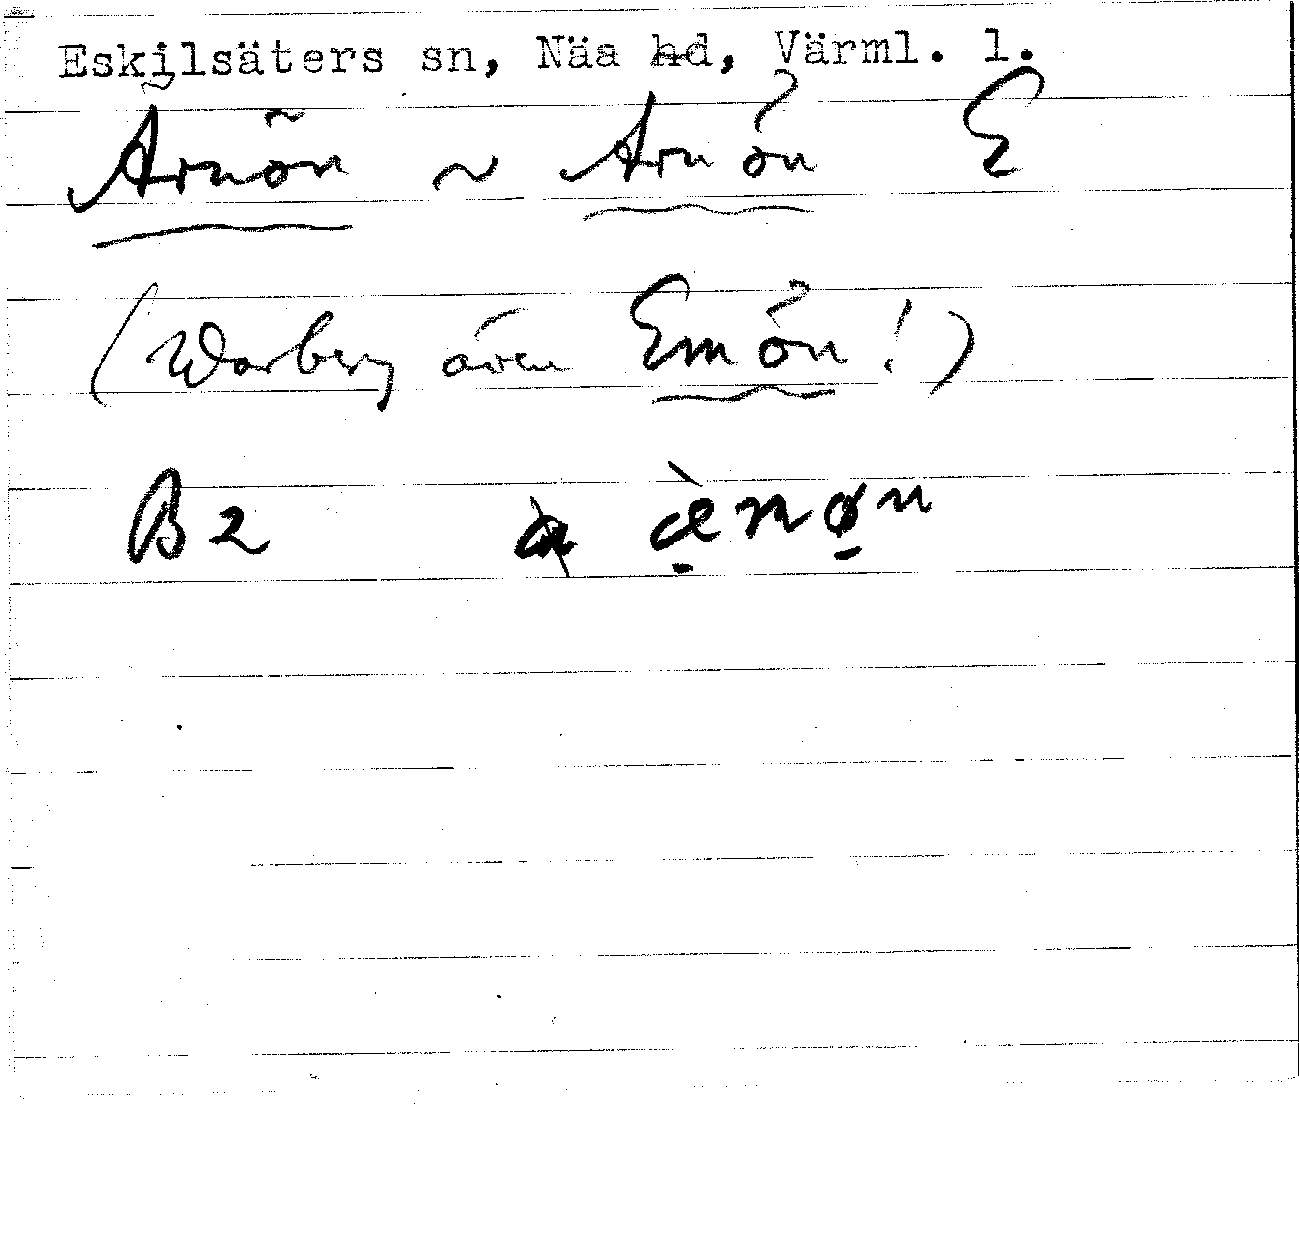 Eskilsäters sn, Näs hd, Värml. l.
Ärnön ~ Arnön E
(Warberg även Emön!)
B2 æ̀nøn